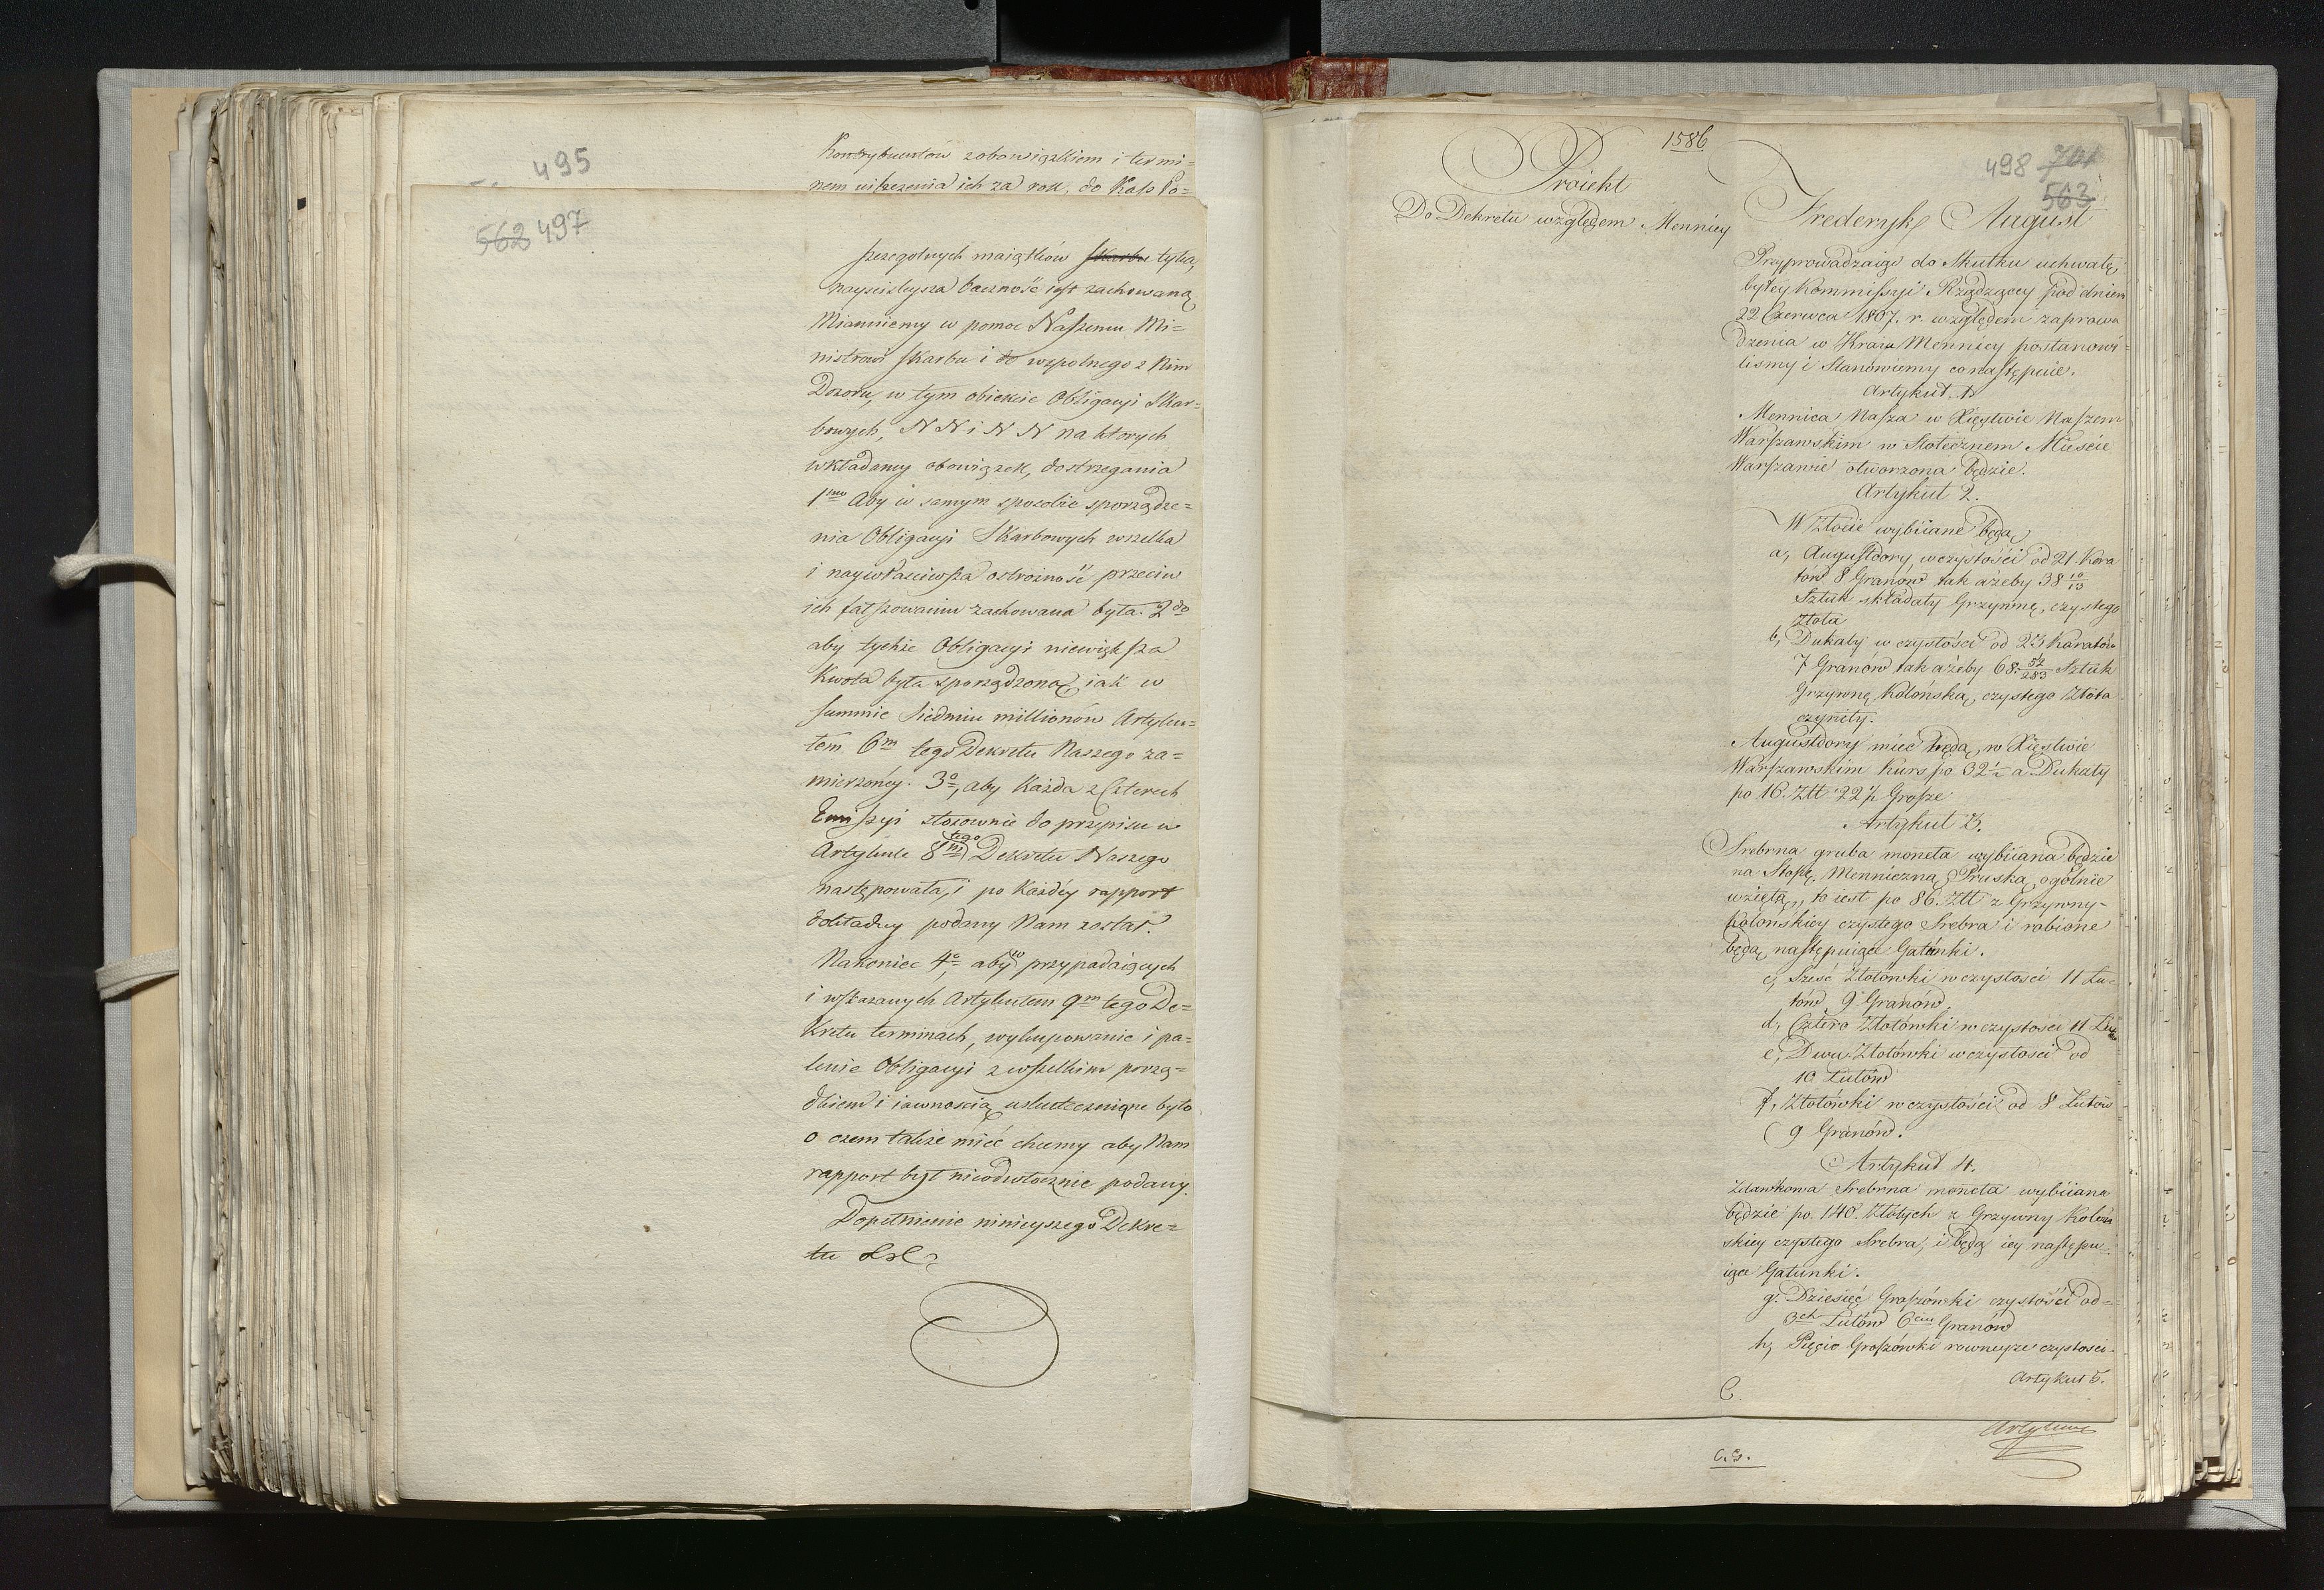 495
Kontrybuentów zobowiązkiem i termi=
nem uiszczenia ich za rok, do Kass Po=
562 497
szczegolnych maiątków skarbu tylko,
nayściśleysza baczność iest zachowaną,
Mianuiemy w pomoc Naszemu Mi=
nistrowi skarbu i do wspolnego z Nim
Dozoru, w tym obiekcie Obligacyi Skar=
bowych, N N i N N na ktorych
wkładamy obowiązek, dostrzegania
1mo Aby w samym sposobie sporządze=
nia Obligacyi Skarbowych wszelka
i naywłasciwsza ostrożność przeciw
ich fałszowaniu zachowana była. 2do
aby tychże Obligacyi niewiększa
Kwota była sporządzona, iak w
summie siedmiu millionów Artyku=
łem 6m tego Dekretu Naszego za=
mierzoney. 3o, aby Każda z Czterech
Emissyi stosownie do przepisu w
Artykule 8m tego Dekretu Naszego
następowała, i po Każdéy rapport
dokładny podany Nam został.
Nakoniec 4o, aby w przypadaiących
i wskazanych Artykułem 9m tego De=
kretu terminach, wykupowanie i pa=
lenie Obligacyi z wszelkim porzą=
dkiem i iawnoscią uskutecznione było
o czem także mieć chcemy aby Nam
rapport był nieodwłocznie podany.
Dopełnienie ninieyszego Dekre=
tu
1586
498 701
563
Proiekt
Do Dekretu względem Mennicy
Frederyk August
Przyprowadzaiąc do Skutku uchwałę
byłey Kommissyi Rządzącey pod dniem
22 Czerwca 1807. r. względem zaprowa
dzenia w Kraiu Mennicy postanowi=
lismy i Stanowiemy co następuie.
Artykuł 1.
Mennica Nasza w Xięstwie Naszem
Warszawskim w Stołecznem Mieście
Warszawie otworzona będzie.
Artykuł 2.
W Złocie wybiiane będą
a, Augustdory, w czystości od 21. Kara
tów 8 Granów tak ażeby 38 10/13
Sztuk składały Grzywnę, czystego
Złota
b, Dukaty w czystości od 23 Karatów
7 Granów tak ażeby 68. 52/283 Sztuk
Grzywnę Kolońską czystego Złota
czyniły.
Augustdory mieć będą, w Xięstwie
Warszawskim Kurs po 32 1/2 a Dukaty
po 16. Złł 22 1/2 Grosze
Artykuł 3.
Srebrna gruba moneta wybiiana będzie
na Stopę Menniczną Pruską ogólnie
wziętą, to iest po 86. Złł z Grzywny
Kolońskiey czystego Srebra i robione
będą następuiące Gatunki.
c, Sześć Złotówki w czystości 11 Łu=
tów 9 Granów.
d, Cztero Złotówki w czystości 11 Łu
e, Dwu Złotówki w czystości od
10 Łutów
f, Złotówki w czystości od 8 Łutów
9 Granów.
Artykuł 4.
Zdawkowa Srebrna moneta wybiiana
będzie po 140. Złotych z Grzywny Koloń
skiey czystego Srebra, i będą iey następu=
iące Gatunki.
g. Dziesięć Groszówki czystości od=
3ch Łutów 6ciu Granów
h, Pięcio Groszówki rowneyże czystości.
Artykuł 5.
C.
C.S.